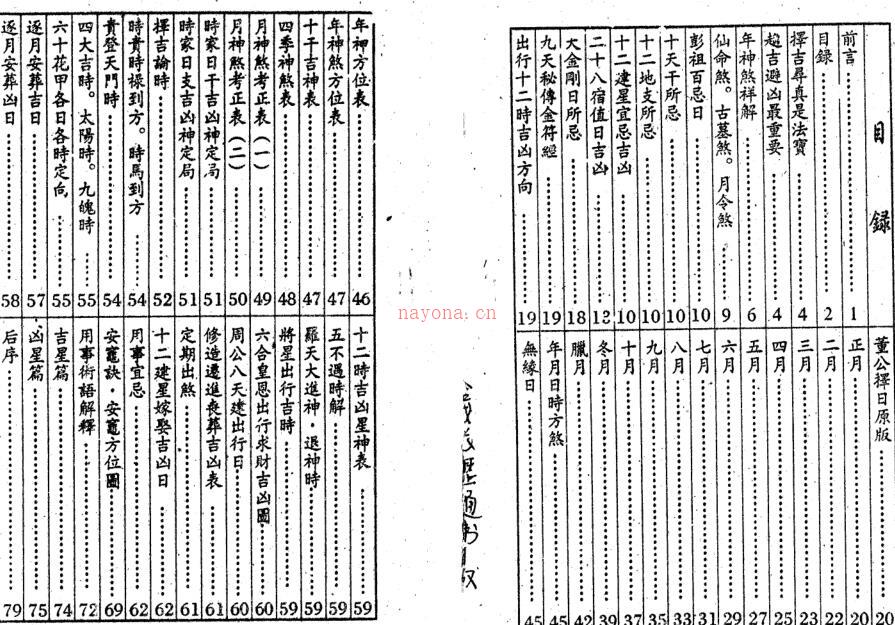 目錄
前言 1
目錄 2
擇吉尋真是法寶 4
趨吉避凶最重要 4
年神煞祥解 6
仙命煞。古墓煞。月令煞 9
彭祖百忌日 10
十天干所忌 10
十二地支所忌 10
十二建星宜忌吉凶 10
二十八宿值日吉凶 12
大金剛日所忌 18
九天秘傳金符經 19
出行十二時吉凶方向 19
董公擇日原版 20
正月 20
二月 22
三月 23
四月 25
五月 27
六月 29
七月 31
八月 33
九月 35
十月 37
冬月 39
臘月 42
年月日時方煞 45
無緣日 45
通書
nayona.cn
年神方位表 46
年神煞方位表 47
十干吉神表 47
四季神煞表 48
月神煞考正表(一) 49
月神煞考正表(二) 50
時家日干吉凶神定局 51
時家日支吉凶神定局 51
擇吉論時 52
時貴時祿到方。時馬到方 54
貴登天門時 54
四大吉時。太陽時。九醜時 55
六十花甲各日各時定向 55
逐月安葬吉日 57
逐月安葬凶日 58
十二時吉凶星神表 59
五不遇時解 59
羅天大進神。退神時 59
將星出行吉時 59
六合皇恩出行求財吉凶圖 60
周公八天建出行日 60
修造遷進喪葬吉凶表 61
定期出煞 61
十二建星嫁娶吉凶日 62
用事宜忌 62
安竈訣。安竈方位圖 69
用事術語解釋 72
吉星篇 74
凶星篇 75
后序 79